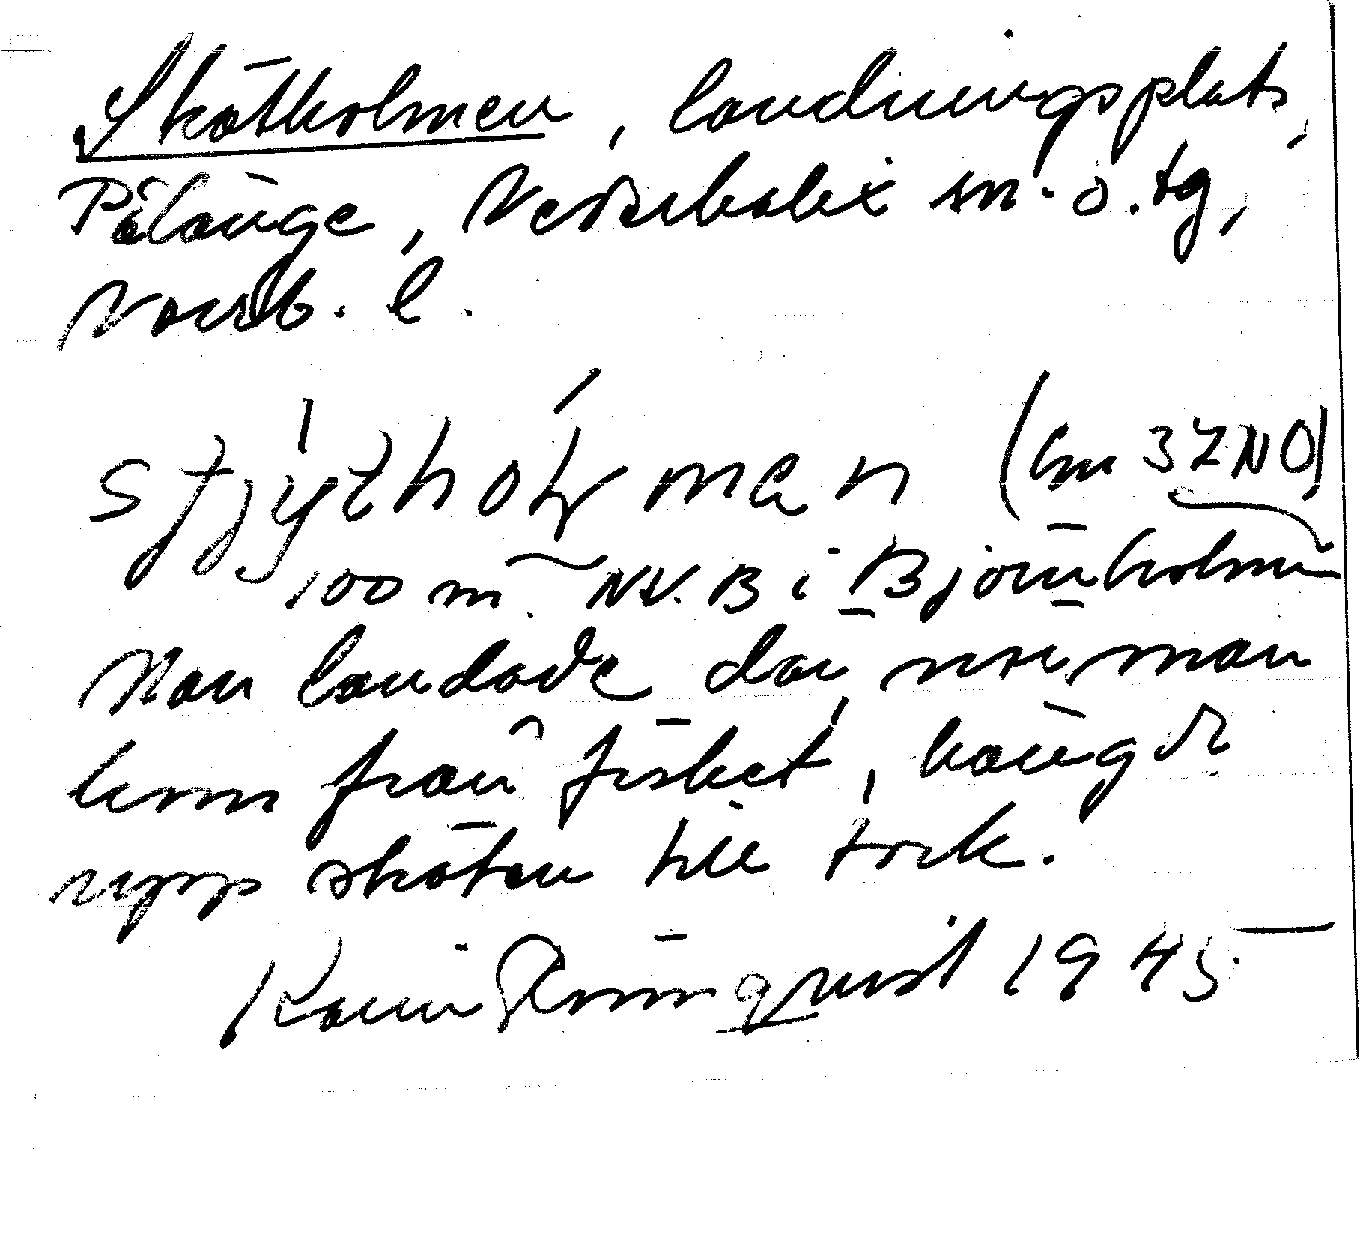 Skötholmen, landningsplats,
Pålänge, Nederkalix sn o. tg,
Norrb. l.
(km 37NO)
100 m NV. B i Björnholmen
Man landade där, när man
kom från fisket, hängde
upp sköten till tork.
Karin Rönnquist 1945